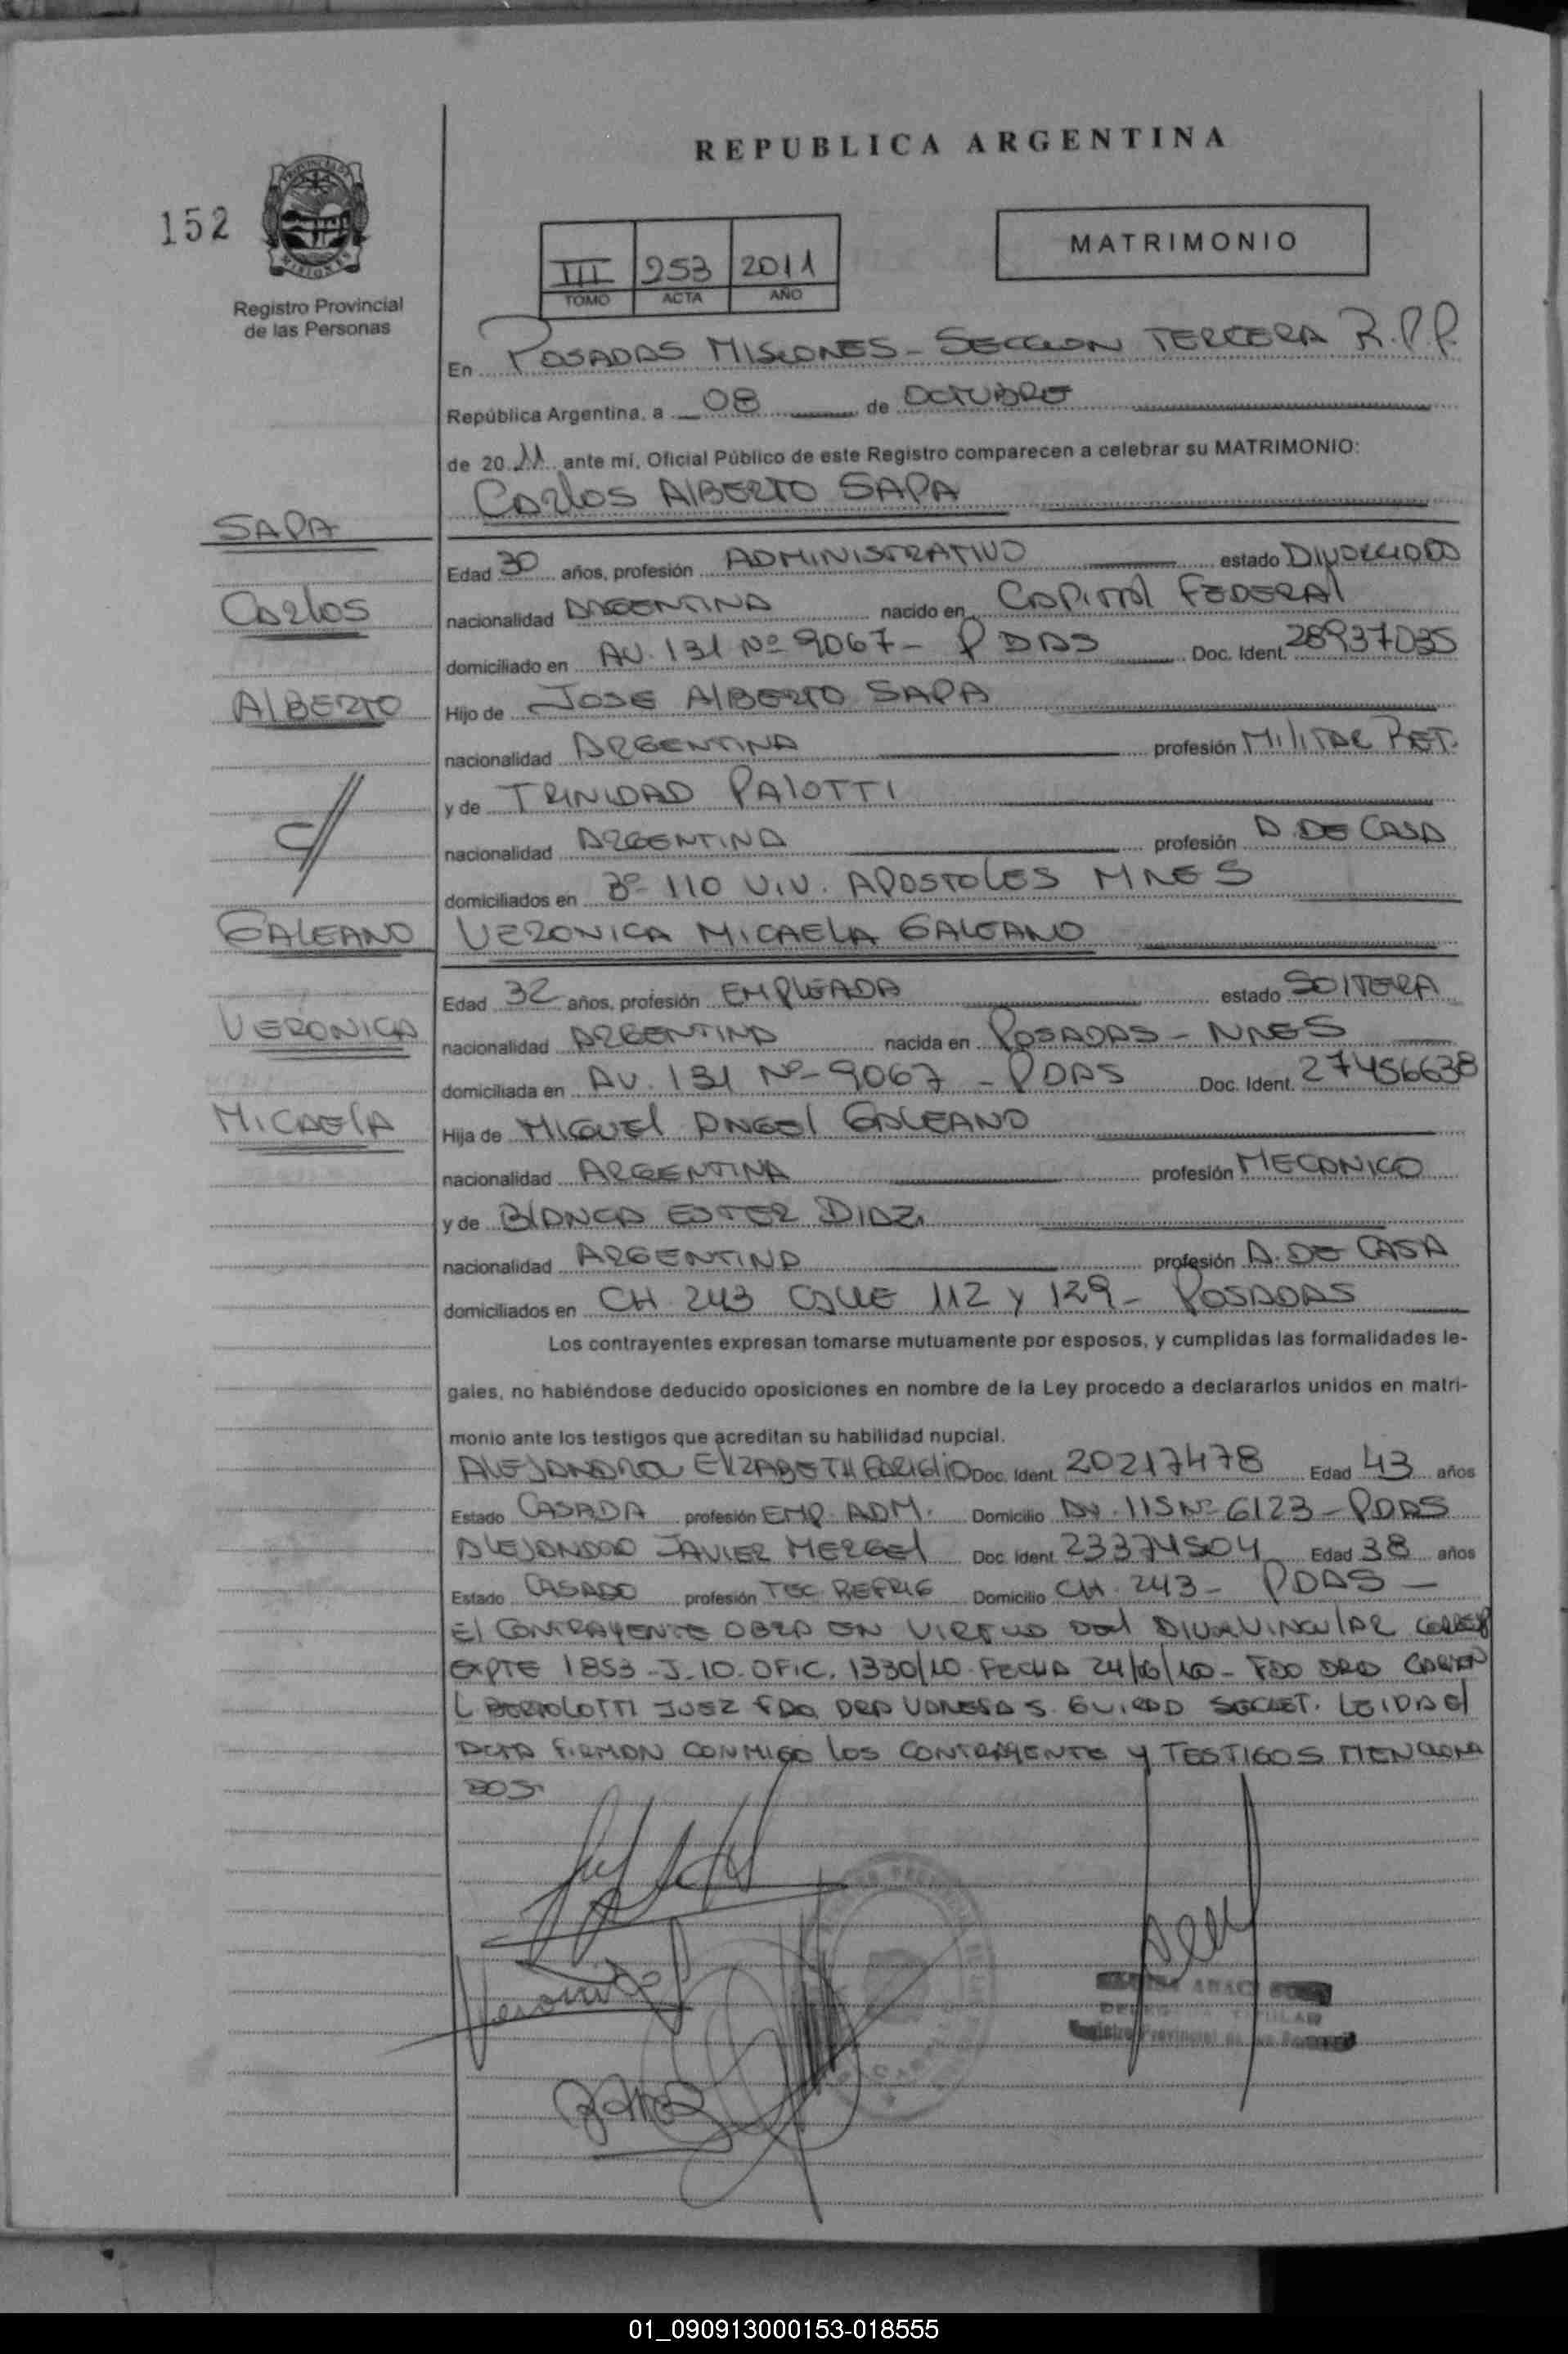 REPUBLICA ARGENTINA
152
Registro Provincial
de las Personas
III 253 2011
TOMO ACTA AÑO
MATRIMONIO
En POSADAS MISIONES - SECCION TERCERA R.P.P.
República Argentina, a 08 de OCTUBRE
de 2011 ante mí, Oficial Público de este Registro comparecen a celebrar su MATRIMONIO:
Carlos AlBERTO SAPA
SAPA
Edad 30 años, profesión ADMINISTRATIVO estado DIVORCIADO
Carlos
nacionalidad ARGENTINA nacido en CAPITAl FEDERAl
domiciliado en AV. 131 Nº 9067 - PDAS Doc. Ident. 28937035
AlBERTO
Hijo de JOSE AlBERTO SAPA
nacionalidad ARGENTINA profesión MIlITAR RET.
y de TRINIDAD PAlOTTI
c/
nacionalidad ARGENTINA profesión A. DE CASA
domiciliados en Bº 110 VIV. APOSTOLES MNES
GALEANO
VERONICA MICAELA GALEANO
Edad 32 años, profesión EMPLEADA estado SOlTERA
VERONICA
nacionalidad ARGENTINA nacida en POSADAS - MNES
domiciliada en AV. 131 Nº 9067 - PDAS Doc. Ident. 27456638
MICAElA
Hija de MIGUEl ANGEl GALEANO
nacionalidad ARGENTINA profesión MECANICO
y de BlANCA ESTER DIAZ
nacionalidad ARGENTINA profesión A. DE CASA
domiciliados en CH. 243 CALLE 112 y 129 - POSADAS
Los contrayentes expresan tomarse mutuamente por esposos, y cumplidas las formalidades le-
gales, no habiéndose deducido oposiciones en nombre de la Ley procedo a declararlos unidos en matri-
monio ante los testigos que acreditan su habilidad nupcial.
ALEJANDRA ELIZABETH Doc. Ident. 20217478 Edad 43 años
Estado CASADA profesión EMP. ADM. Domicilio AV. 115 Nº 6123 - PDAS
ALEJANDRO JAVIER MERGEl Doc. Ident. 23374504 Edad 38 años
Estado CASADO profesión TEC. REFRIG Domicilio CH. 243 - PDAS -
El CONTRAYENTE OBRA EN VIRTUD DEl DIV. VINCULAR
EXPTE 1853 - J - 10. OFIC. 1330/10. FECHA 24/06/10 - FDO DRA CARMEN
L. BERTOLOTTI JUEZ FDO. DRA VANESA S. GUIRAD SECRET. LEIDA El
ACTA FIRMAN CONMIGO los CONTRAYENTE y TESTIGOS MENCIONA
DOS.
Veronica
Registro Provincial de las Personas
01_090913000153-018555